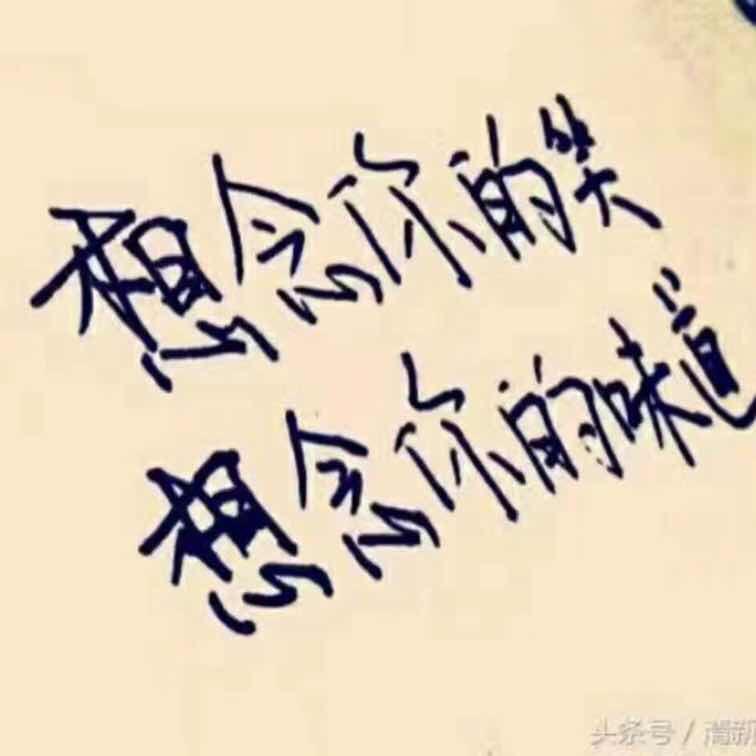 想念你的笑
想念你的味道
头条号 / 清新